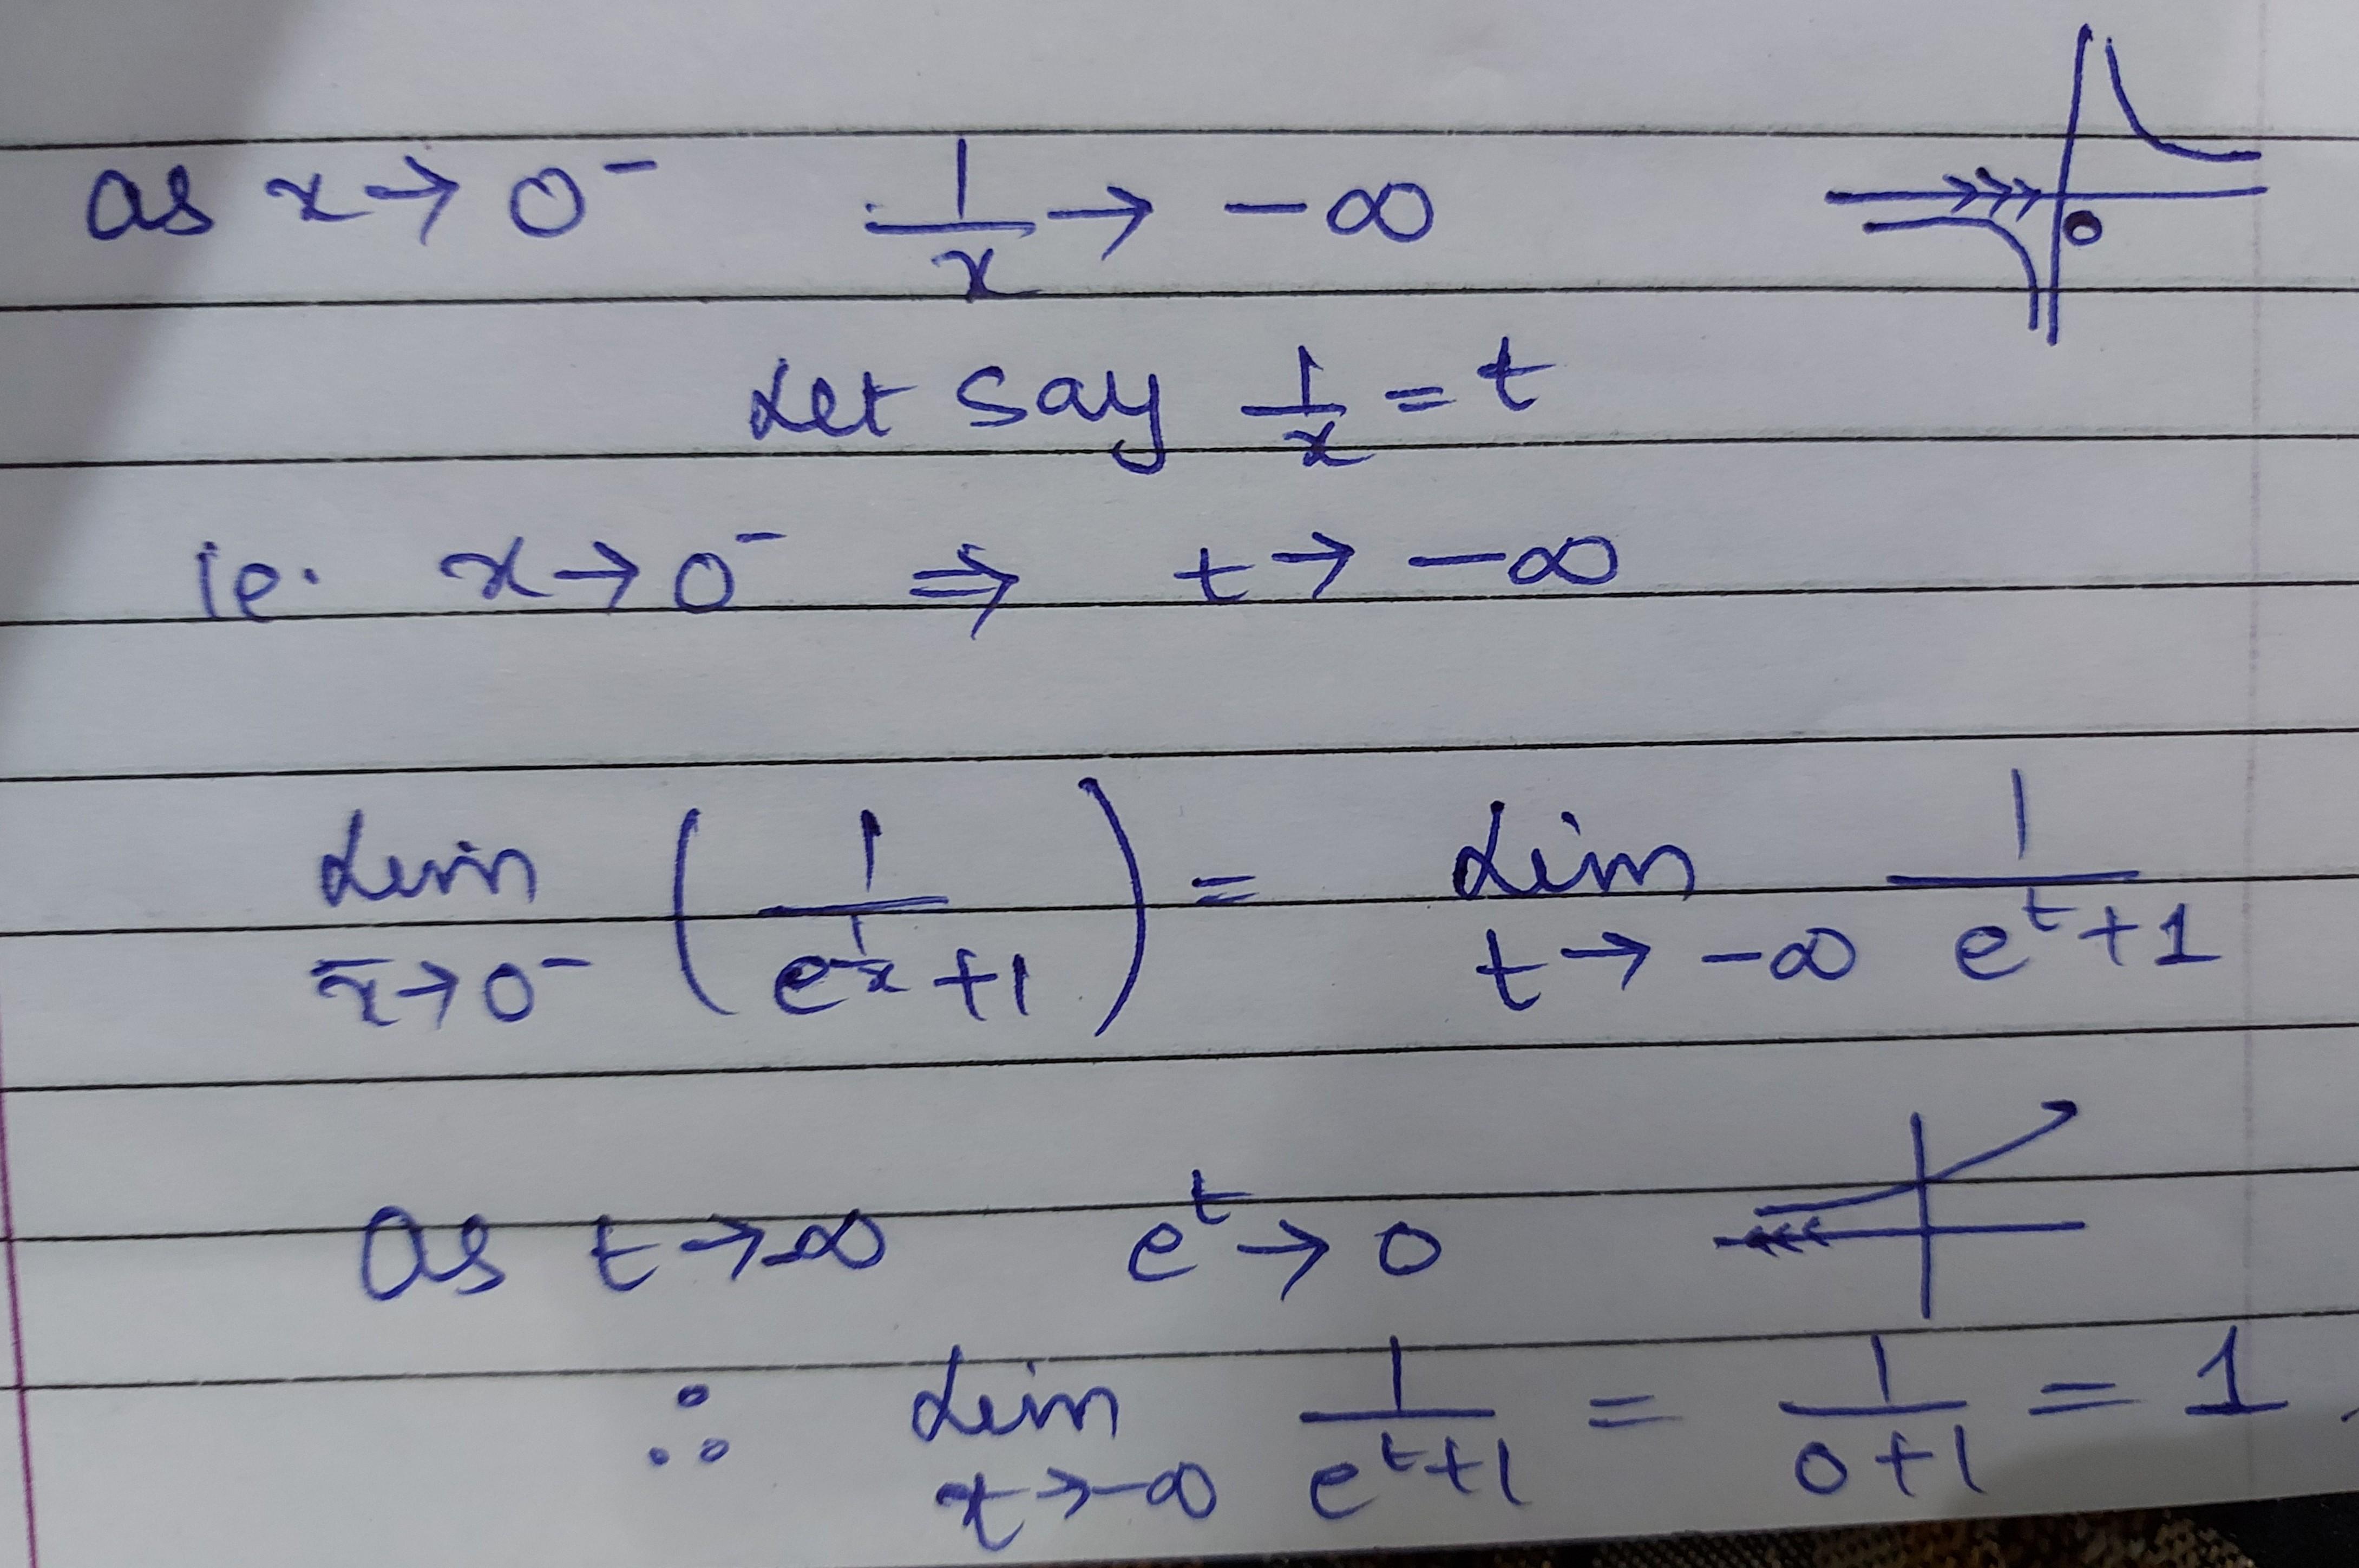 as x → 0⁻ 1/x → -∞
Let say 1/x = t
ie. x → 0⁻ ⇒ t → -∞
Lim x→0⁻ (1/(e^(1/x) + 1)) = Lim t → -∞ 1/(e^t + 1)
as t → -∞ e^t → 0
∴ Lim t → -∞ 1/(e^t + 1) = 1/(0+1) = 1.